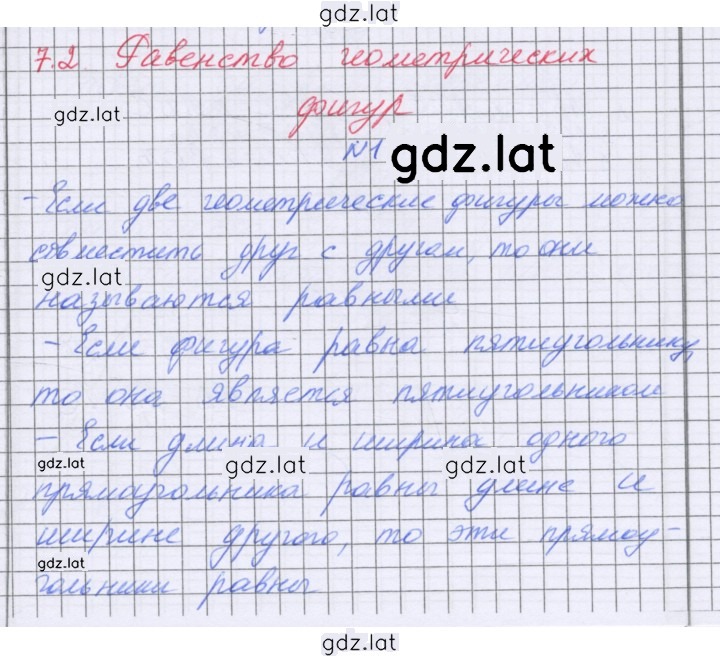 gdz.lat
7.2 Равенство геометрических
gdz.lat
фигур
№1 gdz.lat
- Если две геометрические фигуры можно
совместить друг с другом, то они
gdz.lat
называются равными
- Если фигура равна пятиугольнику,
то она является пятиугольником
- Если длина и ширина одного
gdz.lat gdz.lat gdz.lat
прямоугольника равны длине и
ширине другого, то эти прямоу-
gdz.lat
гольники равны
gdz.lat